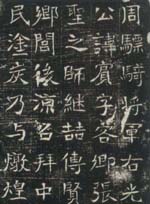 周驃騎將軍右光
公諱賓字客卿張
聖之師繼喆傳賢
鄉閭後涼召拜中
民塗炭乃与燉煌